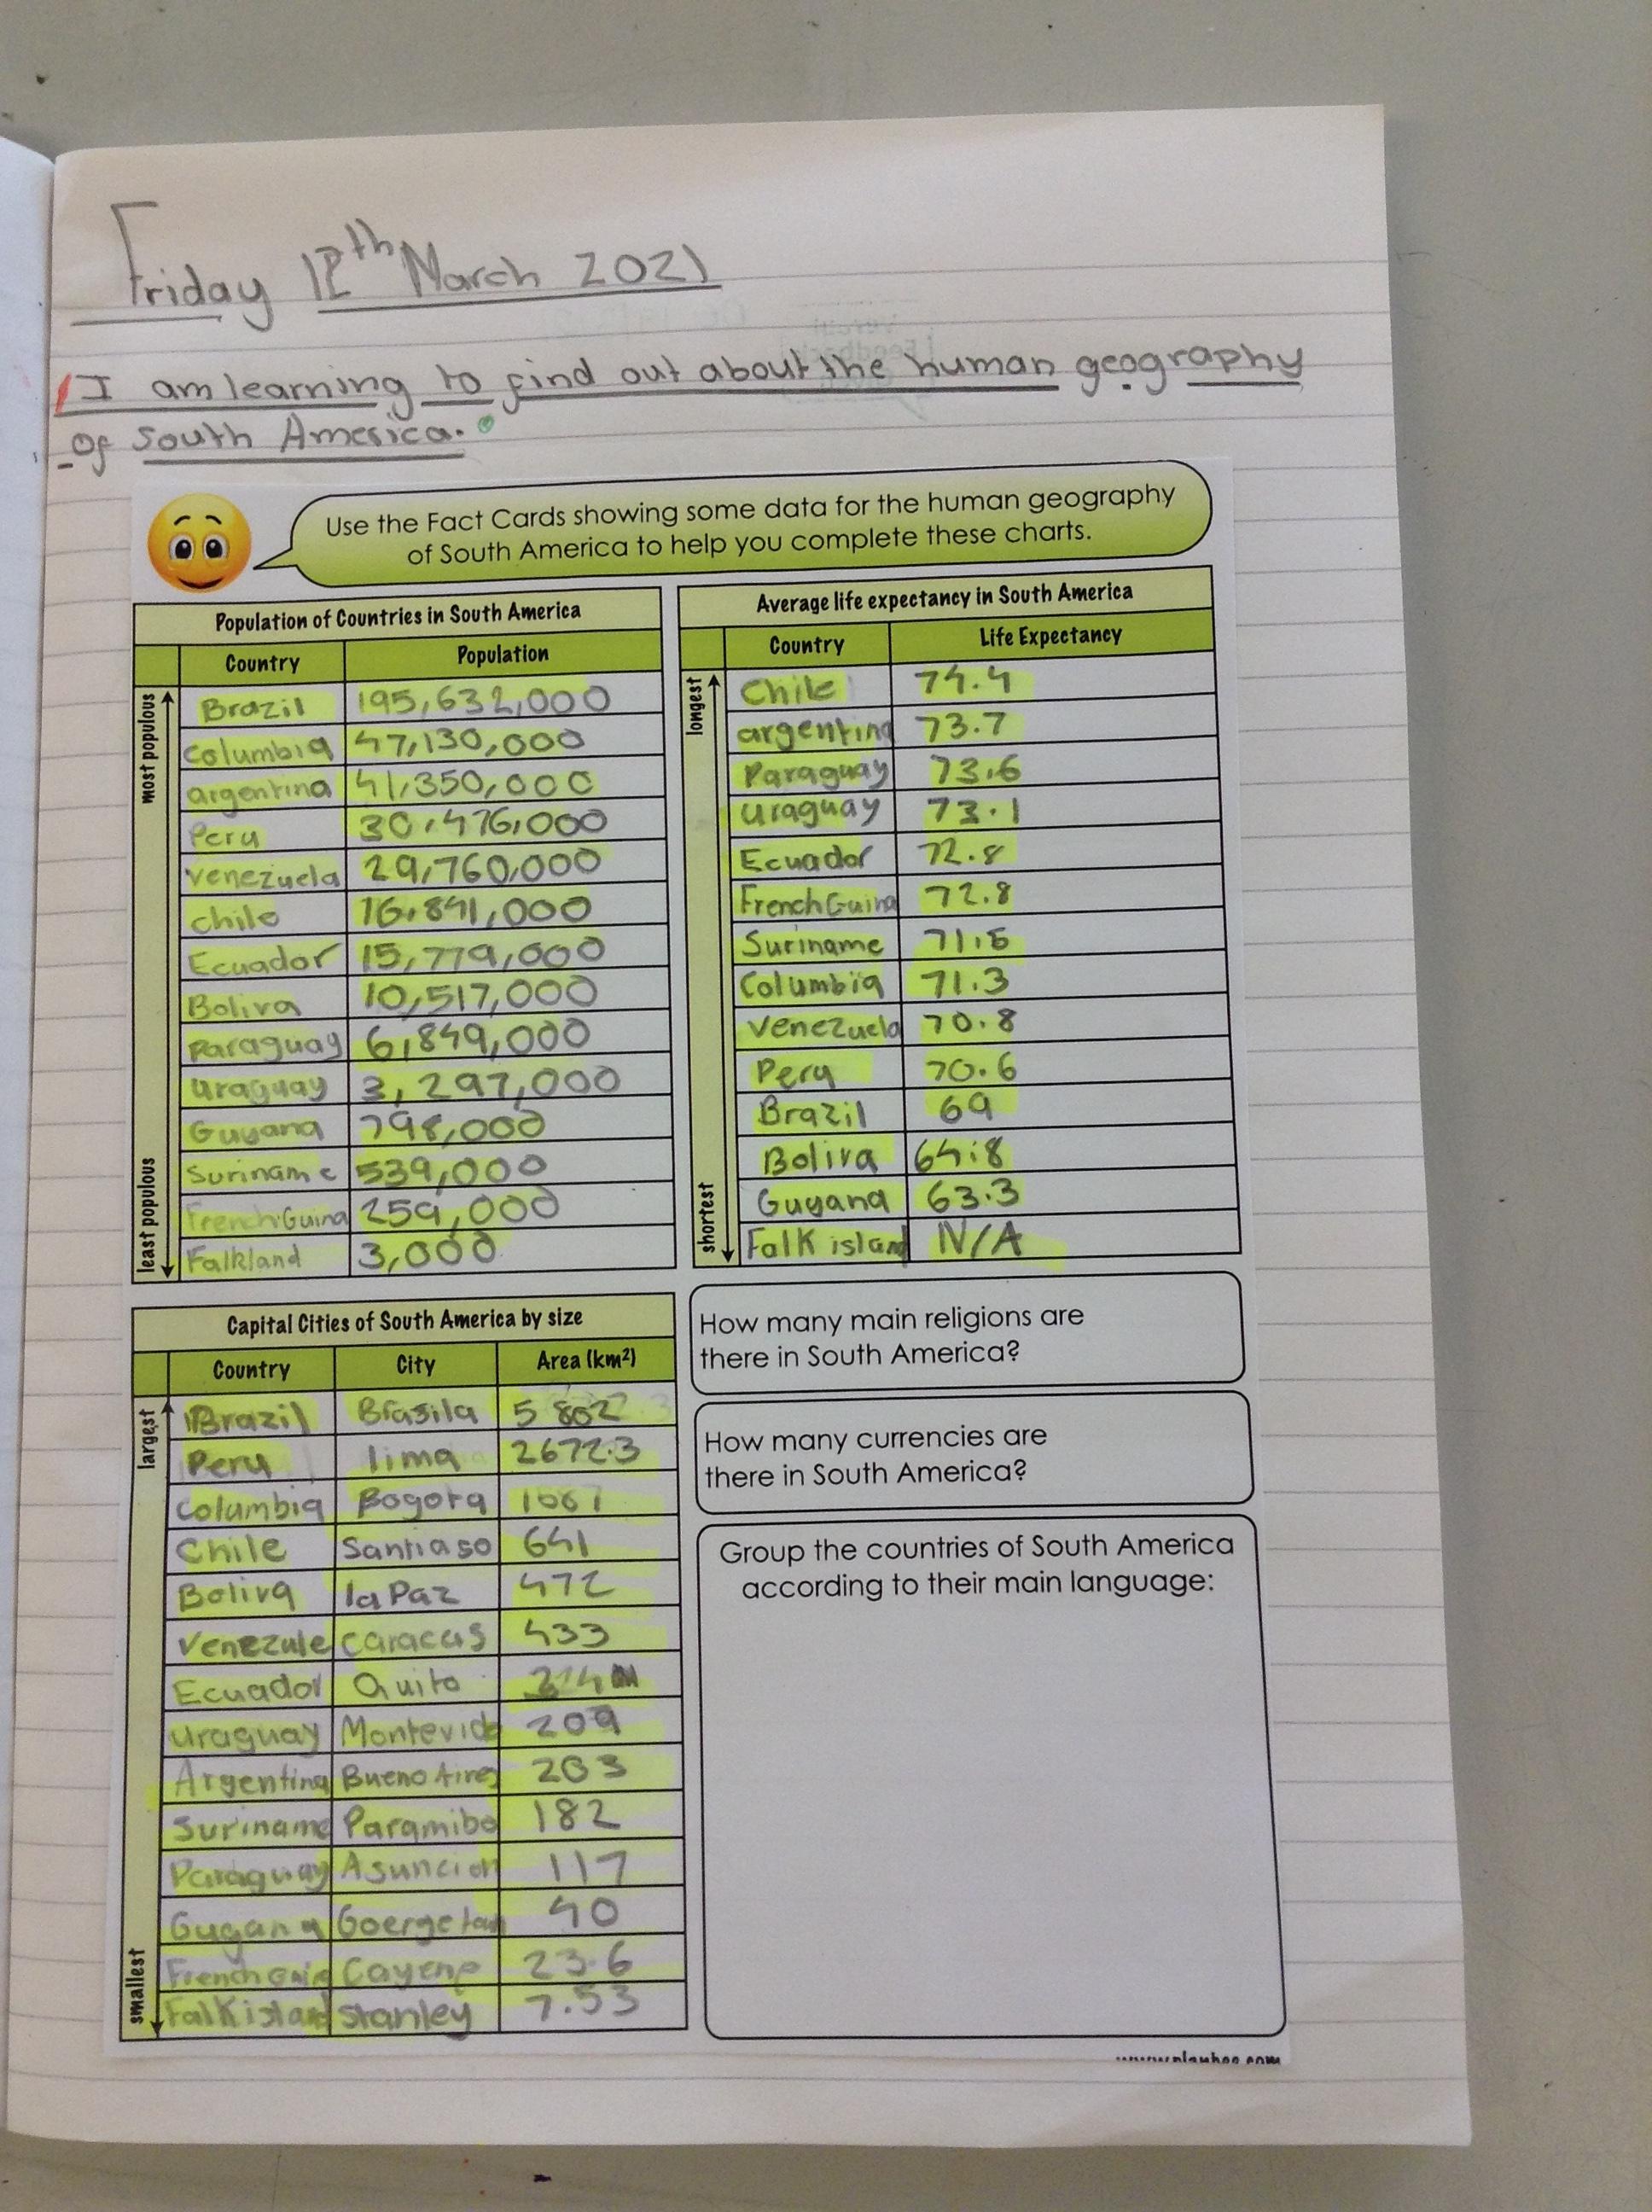 Friday 12th March 2021
I am learning to find out about the human geography
of South America.
Use the Fact Cards showing some data for the human geography
of South America to help you complete these charts.
Population of Countries in South America
Country Population
most populous
least populous
Brazil 195,632,000
Columbia 47,130,000
argentina 41,350,000
Peru 30,476,000
Venezuela 29,760,000
chile 16,841,000
Ecuador 15,779,000
Boliva 10,517,000
paraguay 6,849,000
uraguay 3,297,000
Guyana 798,000
Suriname 539,000
French Guina 259,000
Falkland 3,000
Average life expectancy in South America
Country Life Expectancy
longest
shortest
Chile 74.4
argentina 73.7
Paraguay 73.6
uraguay 73.1
Ecuador 72.8
French Guina 72.8
Suriname 71.5
Columbia 71.3
Venezuela 70.8
Peru 70.6
Brazil 69
Boliva 64.8
Guyana 63.3
Falk island N/A
Capital Cities of South America by size
Country City Area (km²)
largest
smallest
Brazil Brasila 5 802
Peru lima 2672.3
Columbia Bogota
Chile Santiago 641
Boliva la Paz 472
Venezule caracas 433
Ecuador Quito
uraguay Montevido 209
Argentina Bueno Aires 203
Suriname Paramibo 182
Paraguay Asuncion 117
Guyana 40
French 23.6
Falk island Stanley 7.53
How many main religions are
there in South America?
How many currencies are
there in South America?
Group the countries of South America
according to their main language: